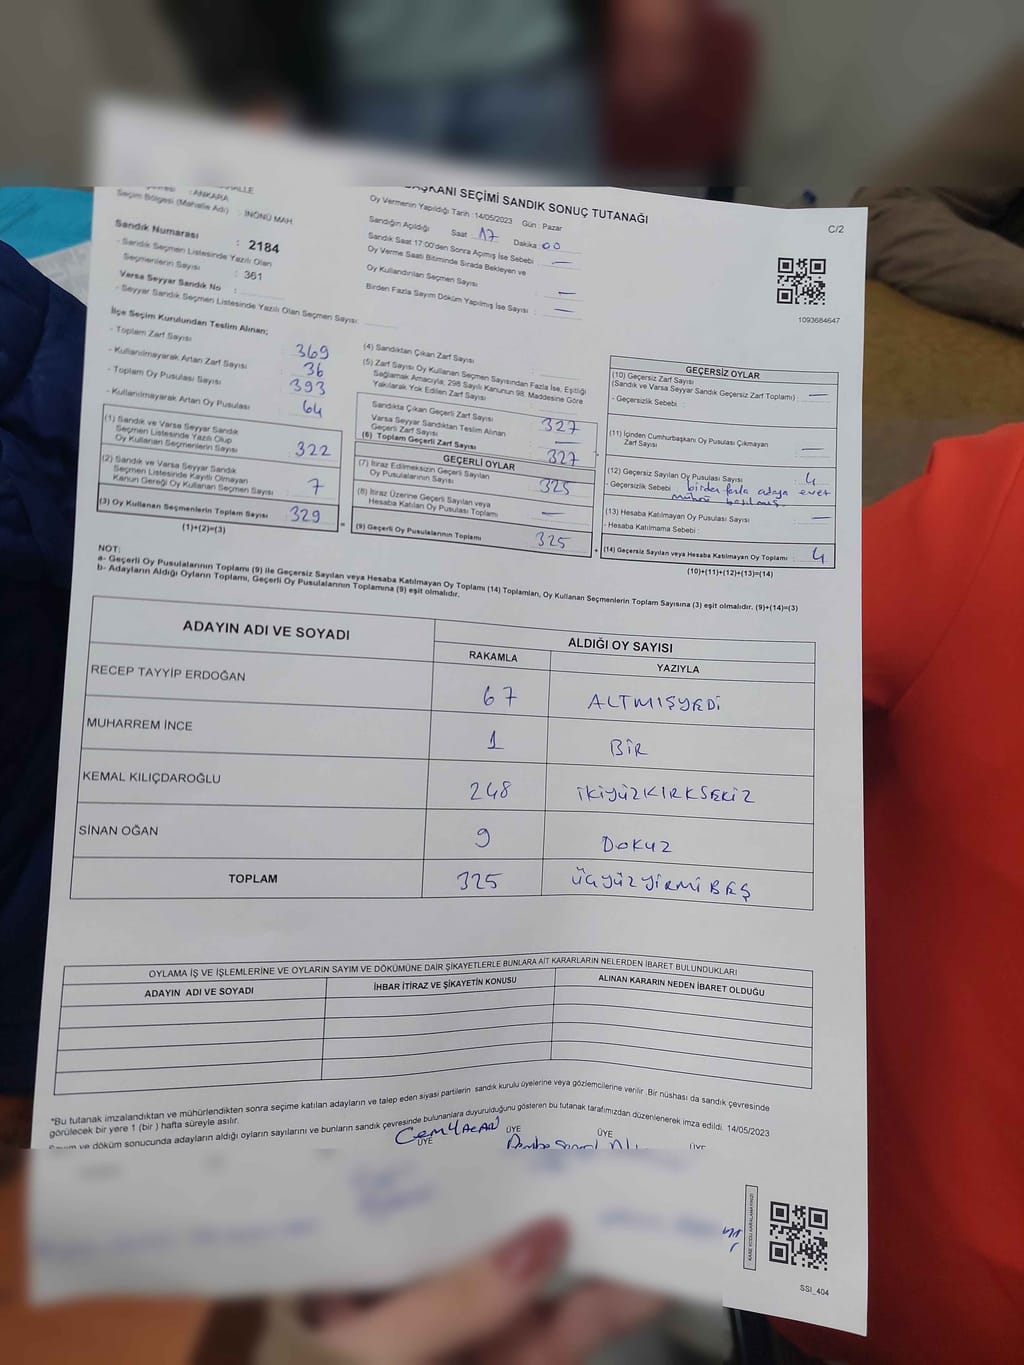 KANI SEÇİMİ SANDIK SONUÇ TUTANAĞI
C/2
: ANKARA
Seçim Bölgesi (Mahalle Adı) : İNÖNÜ MAH.
Sandık Numarası : 2184
- Sandık Seçmen Listesinde Yazılı Olan
Seçmenlerin Sayısı : 361
Varsa Seyyar Sandık No :
- Seyyar Sandık Seçmen Listesinde Yazılı Olan Seçmen Sayısı:
Oy Vermenin Yapıldığı Tarih : 14/05/2023 Gün : Pazar
Sandığın Açıldığı Saat : 17 Dakika : 00
Sandık Saat 17:00'den Sonra Açımış İse Sebebi : —
Oy Verme Saati Bitiminde Sırada Bekleyen ve
Oy Kullandırılan Seçmen Sayısı : —
Birden Fazla Sayım Döküm Yapılmış İse Sayısı : —
1093684647
İlçe Seçim Kurulundan Teslim Alınan;
- Toplam Zarf Sayısı : 369
- Kullanılmayarak Artan Zarf Sayısı : 36
- Toplam Oy Pusulası Sayısı : 393
- Kullanılmayarak Artan Oy Pusulası : 64
(1) Sandık ve Varsa Seyyar Sandık
Seçmen Listesinde Yazılı Olup
Oy Kullanan Seçmenlerin Sayısı : 322
(2) Sandık ve Varsa Seyyar Sandık
Seçmen Listesinde Kayıtlı Olmayan
Kanun Gereği Oy Kullanan Seçmen Sayısı : 7
(3) Oy Kullanan Seçmenlerin Toplam Sayısı : 329
(1)+(2)=(3)
(4) Sandıktan Çıkan Zarf Sayısı :
(5) Zarf Sayısı Oy Kullanan Seçmen Sayısından Fazla İse, Eşitliği
Sağlamak Amacıyla; 298 Sayılı Kanunun 98. Maddesine Göre
Yakılarak Yok Edilen Zarf Sayısı :
Sandıkta Çıkan Geçerli Zarf Sayısı : 327
Varsa Seyyar Sandıktan Teslim Alınan
Geçerli Zarf Sayısı : —
(6) Toplam Geçerli Zarf Sayısı : 327
GEÇERLİ OYLAR
(7) İtiraz Edilmeksizin Geçerli Sayılan
Oy Pusulalarının Sayısı : 325
(8) İtiraz Üzerine Geçerli Sayılan veya
Hesaba Katılan Oy Pusulası Toplamı : —
(9) Geçerli Oy Pusulalarının Toplamı : 325
GEÇERSİZ OYLAR
(10) Geçersiz Zarf Sayısı
(Sandık ve Varsa Seyyar Sandık Geçersiz Zarf Toplamı) : —
- Geçersizlik Sebebi :
(11) İçinden Cumhurbaşkanı Oy Pusulası Çıkmayan
Zarf Sayısı : —
(12) Geçersiz Sayılan Oy Pusulası Sayısı : 4
- Geçersizlik Sebebi : birden fazla adaya evet
mührü basılmış
(13) Hesaba Katılmayan Oy Pusulası Sayısı : —
- Hesaba Katılmama Sebebi :
(14) Geçersiz Sayılan veya Hesaba Katılmayan Oy Toplamı : 4
(10)+(11)+(12)+(13)=(14)
NOT:
a- Geçerli Oy Pusulalarının Toplamı (9) ile Geçersiz Sayılan veya Hesaba Katılmayan Oy Toplamı (14) Toplamları, Oy Kullanan Seçmenlerin Toplam Sayısına (3) eşit olmalıdır. (9)+(14)=(3)
b- Adayların Aldığı Oyların Toplamı, Geçerli Oy Pusulalarının Toplamına (9) eşit olmalıdır.
ADAYIN ADI VE SOYADI ALDIĞI OY SAYISI
RAKAMLA YAZIYLA
RECEP TAYYİP ERDOĞAN 67 ALTMIŞYEDİ
MUHARREM İNCE 1 BİR
KEMAL KILIÇDAROĞLU 248 İKİYÜZKIRKSEKİZ
SİNAN OĞAN 9 DOKUZ
TOPLAM 325 ÜÇYÜZYİRMİBEŞ
OYLAMA İŞ VE İŞLEMLERİNE VE OYLARIN SAYIM VE DÖKÜMÜNE DAİR ŞİKAYETLERLE BUNLARA AİT KARARLARIN NELERDEN İBARET BULUNDUKLARI
ADAYIN ADI VE SOYADI İHBAR İTİRAZ VE ŞİKAYETİN KONUSU ALINAN KARARIN NEDEN İBARET OLDUĞU
*Bu tutanak imzalandıktan ve mühürlendikten sonra seçime katılan adayların ve talep eden siyasi partilerin sandık kurulu üyelerine veya gözlemcilerine verilir. Bir nüshası da sandık çevresinde
görülecek bir yere 1 (bir ) hafta süreyle asılır.
ve döküm sonucunda adayların aldığı oyların sayılarını ve bunların sandık çevresinde bulunanlara duyurulduğunu gösteren bu tutanak tarafımızdan düzenlenerek imza edildi. 14/05/2023
ÜYE ÜYE ÜYE ÜYE
KAŞE KODU KARALAMAYINIZ!
SSI_404